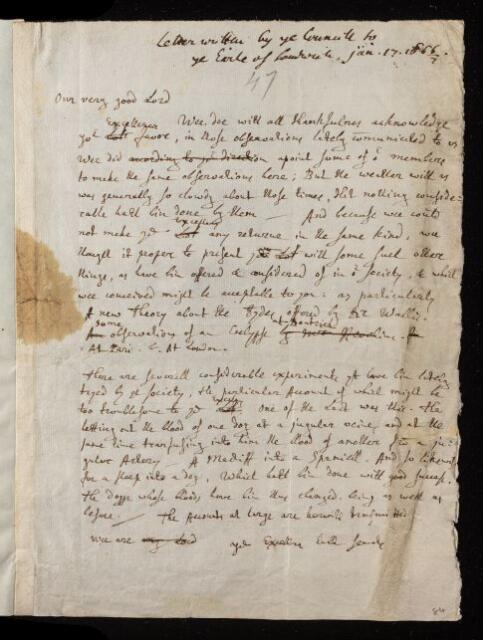 Letter written by ye Councill to
ye Earle of Sandwich, Jan. 17. 1666/7.
47
Our very good Lord
Excellence
Wee doe with all thankfulnes acknowledge
yor favore, in those observations lately communicated to us
Wee did according to yor direction apoint some of or members
to make the same observations here; But the weather with us
was generally so cloudy about those times, that nothing conside-
rable hath bin done by them — And because wee could
Excellence
not make yor Lop any returne in the same kind, wee
thought it proper to present yor Lop with some such other
things, as have bin offered & considered of in or Society, & which
wee conceived might be acceptable to you: as particularly
A new Theory about the Tydes, offered by Dr Wallis.
some
An observation of an Ecclypse by
At Paris. & At London.
There are severall considerable experiments yt have bin lately
tryed by ye Society, the particular Account of which might be
too troublesome to yor Lop. One of the last was this. The
letting out the blood of one dog at a jugular veine, and at the
same time transfusing into him the blood of another from a ju-
gular Artery — A Mastiff into a Spaniell. And so likewise
for a sheep into a dog, Which hath bin done with good success,
The doggs whose bloods have bin thus changed, being as well as
before. — The Accounts at large are herewith transmitted
we are my Lord yor
84